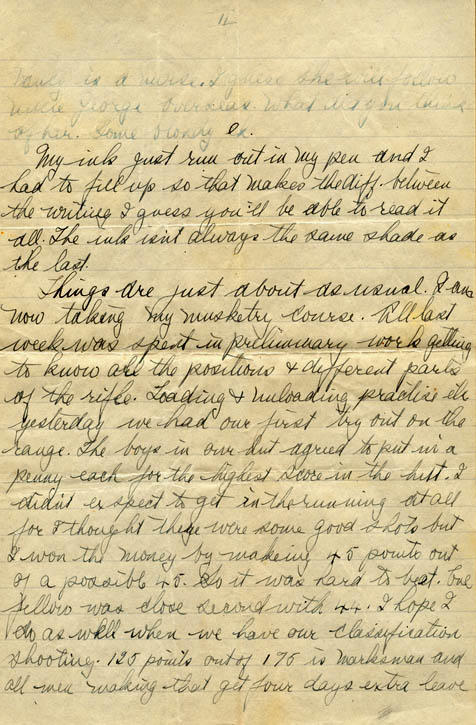 11
is a nurse. I guess she will follow
uncle George overseas. What do you think
of her. Some
My ink just run out in my pen and I
had to fill up so that makes the diff. between
the writing I guess you'll be able to read it
all. The ink isn't always the same shade as
the last.
Things are just about as usual. I am
now taking my musketry course. All last
week was spent in preliminary work getting
to know all the positions & different parts
of the rifle. Loading & unloading practise etc
yesterday we had our first try out on the
range. The boys in our hut agreed to put in a
penny each for the highest score in the hutt. I
didn't exspect to get in the running at all
for I thought there were some good shots but
I won the money by makeing 45 points out
of a possible 45. So it was hard to beat. One
fellow was close second with 44. I hope I
do as well when we have our classification
shooting. 125 points out of 175 is Marksman and
all men making that get four days extra leave